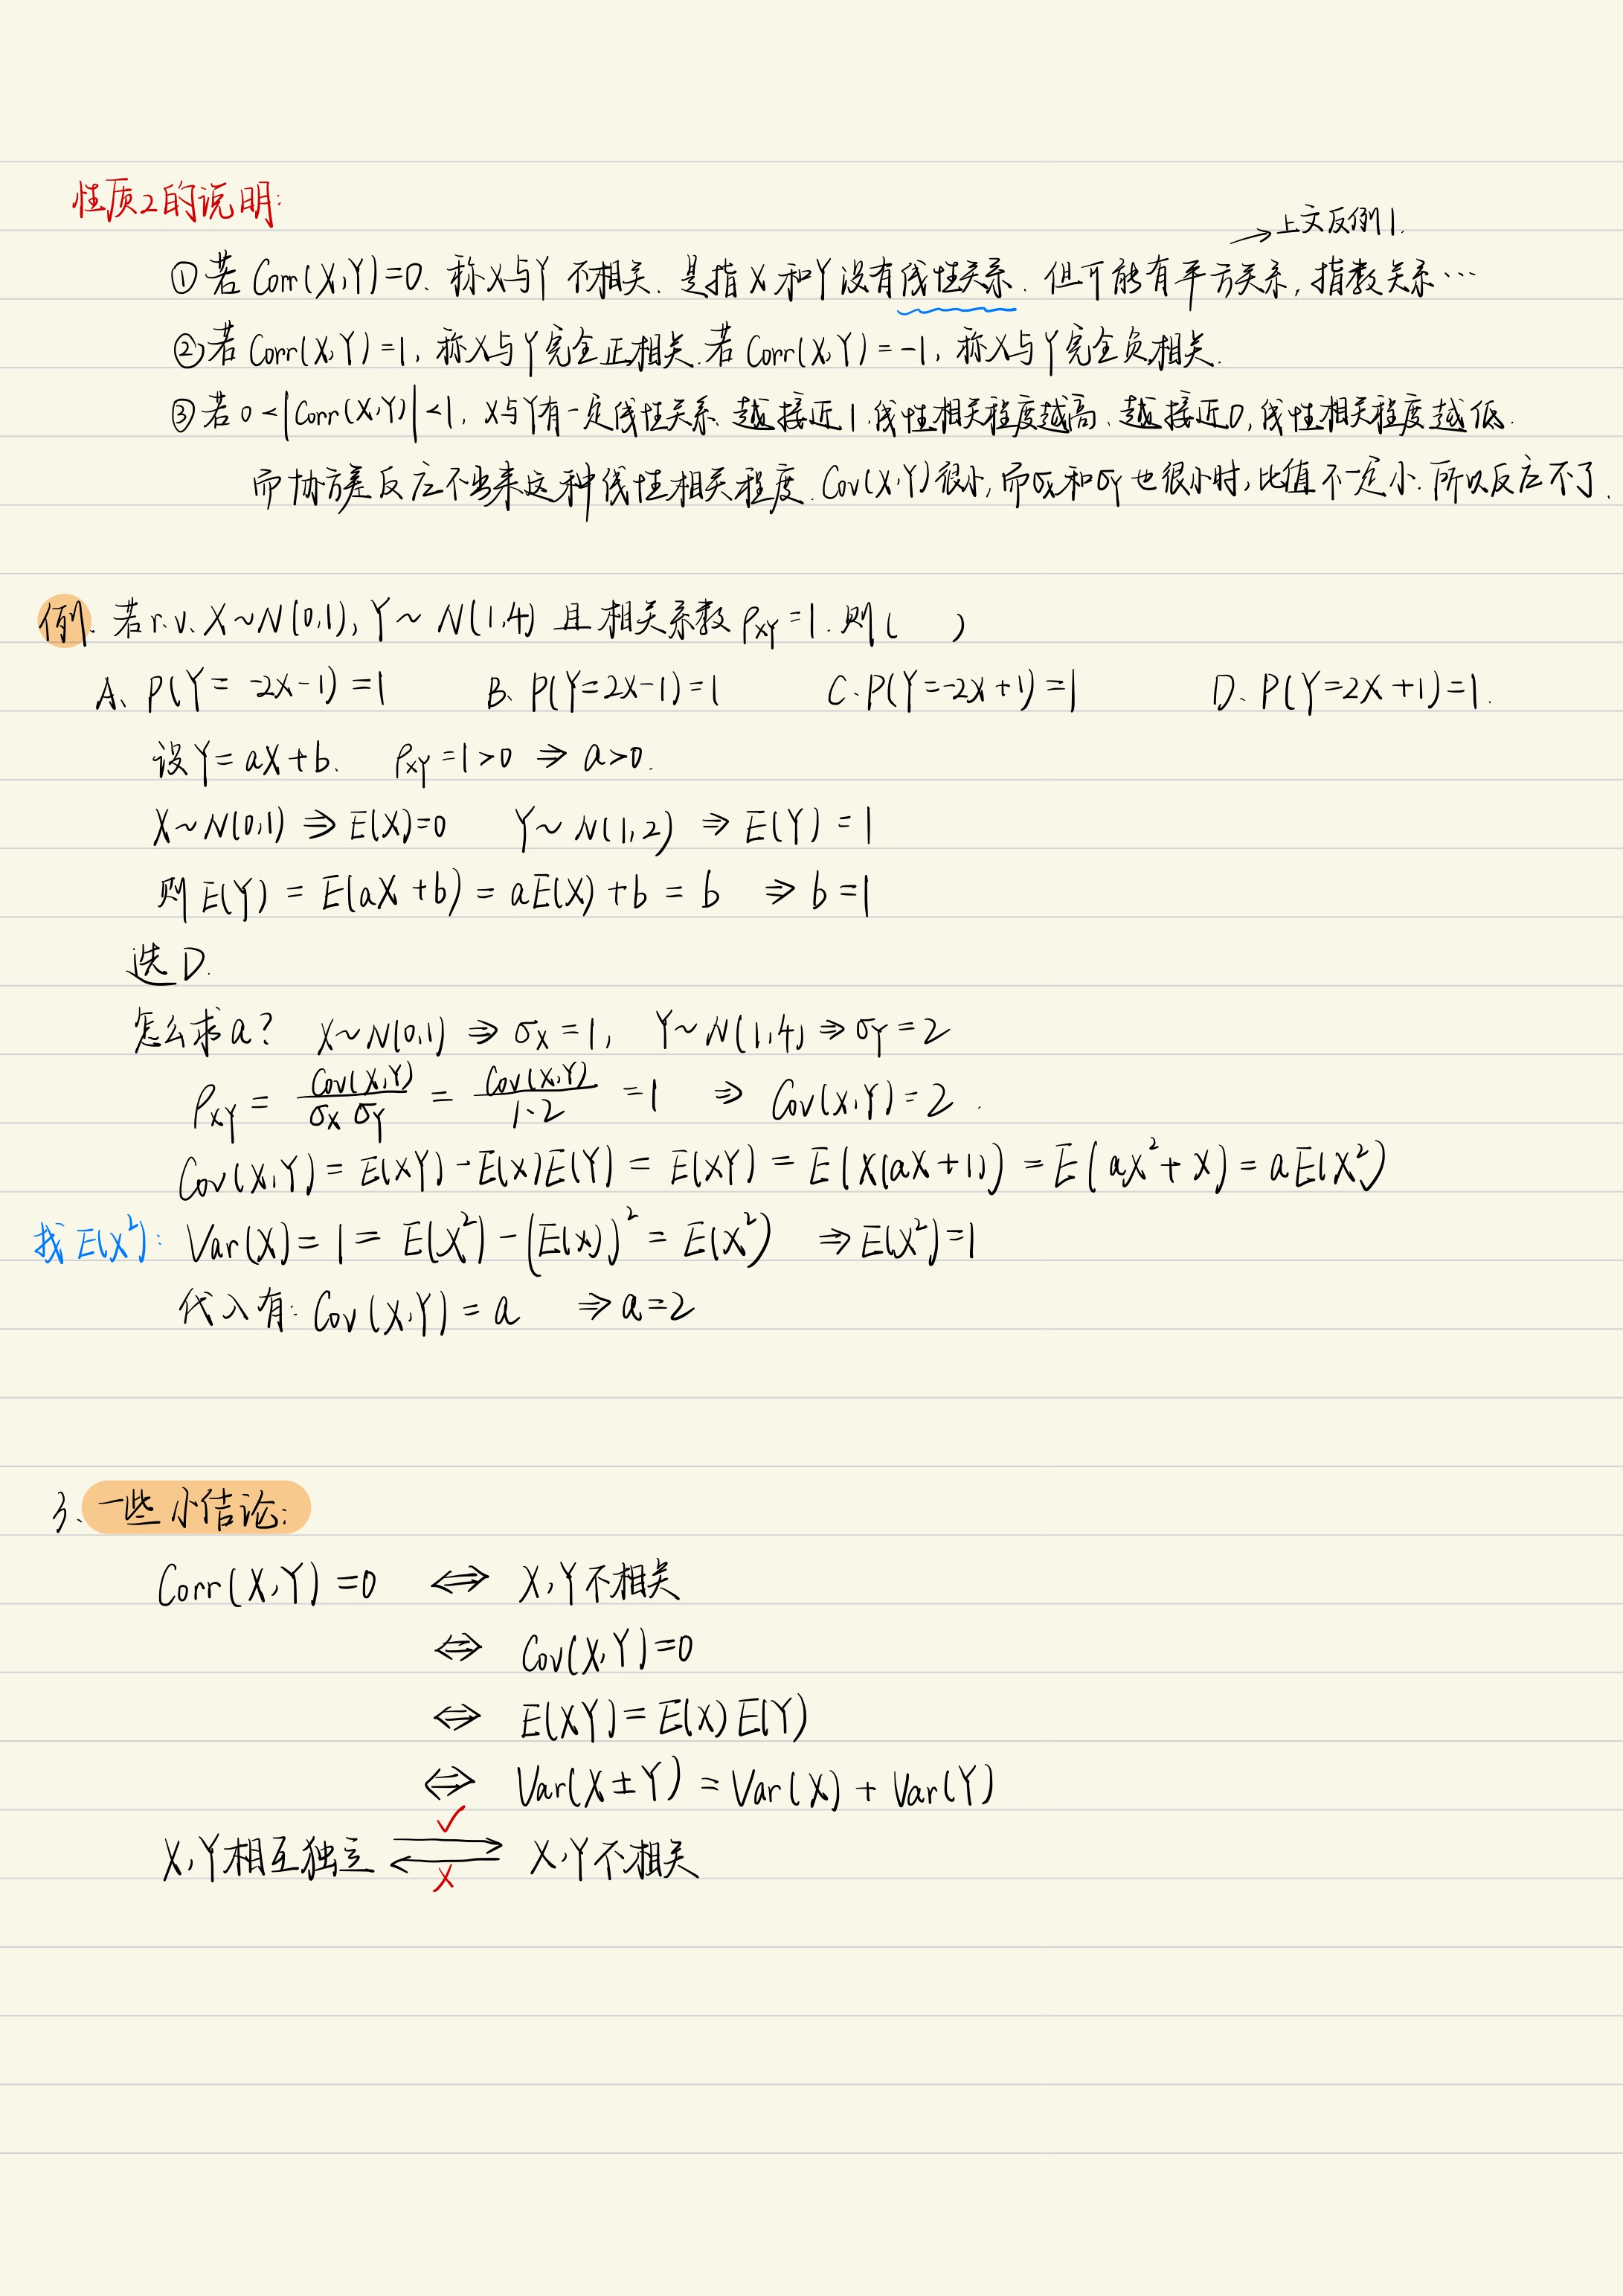 性质2的说明:
→上文反例1.
①若 Corr(X,Y)=0. 称X与Y 不相关. 是指 X 和Y没有线性关系. 但可能有平方关系, 指数关系…
②若 Corr(X,Y)=1, 称X与Y完全正相关. 若 Corr(X,Y)=-1, 称X与Y完全负相关.
③若 0<|Corr(X,Y)|<1, X与Y有一定线性关系. 越接近1.线性相关程度越高、越接近0,线性相关程度越低.
而协方差反应不出来这种线性相关程度. Cov(X,Y)很小,而σx和σY也很小时,比值不一定小. 所以反应不了.
例. 若r.v. X~N(0,1), Y~ N(1,4) 且相关系数 ρXY=1. 则( )
A、P(Y= -2X-1)=1 B、P(Y=2X-1)=1 C.P(Y=-2X+1)=1 D、P(Y=2X+1)=1.
设Y=aX+b. ρXY=1>0 ⇒ a>0.
X~N(0,1) ⇒ E(X)=0 Y~N(1,2) ⇒ E(Y)=1
则 E(Y) = E(aX+b) = aE(X)+b = b ⇒ b=1
选D.
怎么求a? X~N(0,1) ⇒ σX=1, Y~N(1,4) ⇒ σY=2
ρXY = Cov(X,Y)/σX σY = Cov(X,Y)/1·2 =1 ⇒ Cov(X,Y)=2.
Cov(X,Y)= E(XY)-E(X)E(Y) = E(XY) = E(X(aX+1)) = E(aX²+X) = aE(X²)
找E(X²): Var(X)= 1 = E(X²)-(E(X))² = E(X²) ⇒E(X²)=1
代入有: Cov(X,Y)=a ⇒a=2
3、一些小结论:
Corr(X,Y)=0 ⇔ X,Y不相关
⇔ Cov(X,Y)=0
⇔ E(XY)=E(X)E(Y)
⇔ Var(X±Y)=Var(X)+Var(Y)
✓
X,Y相互独立 ⇄ X,Y不相关
×